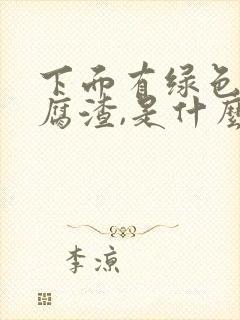 下而有绿色
腐渣,是什麽
李凉